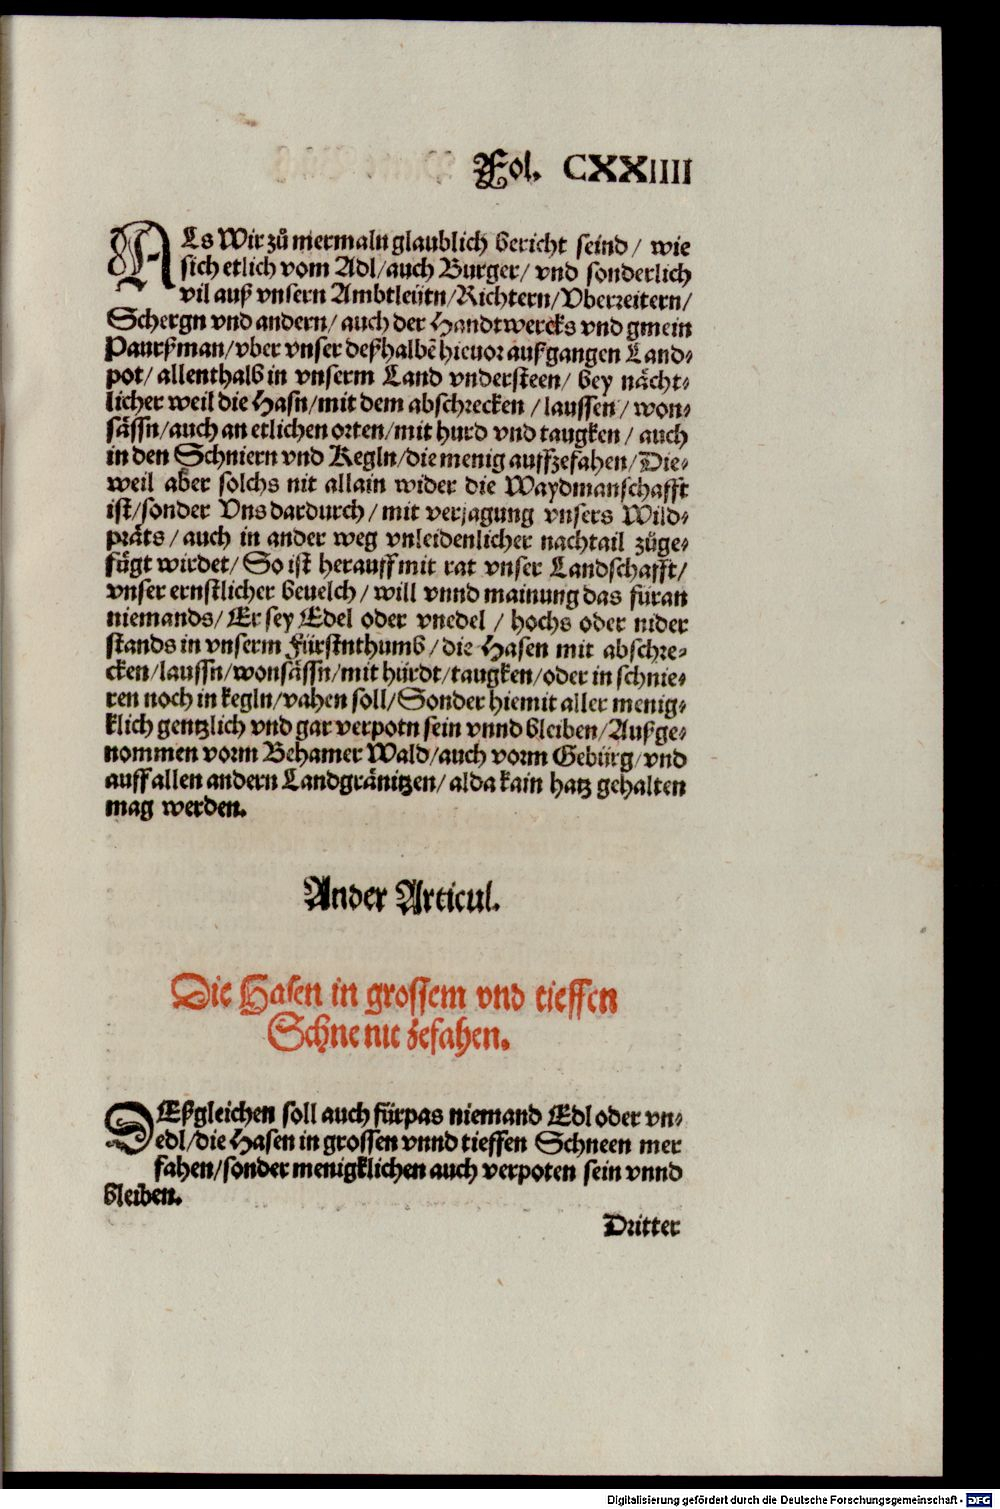 Fol. CXXIIII
ALs Wir zů mermaln glaublich bericht seind / wie
sich etlich vom Adl / auch Burger / vnd sonderlich
vil auß vnsern Ambtleütn / Richtern / Vberreitern /
Schergn vnd andern / auch der Handtwercks vnd gmein
Paurßman / vber vnser deßhalbē hieuor außgangen Land⸗
pot / allenthalb in vnserm Land vndersteen / bey nächt⸗
licher weil die Hasn / mit dem abschrecken / laussen / won⸗
sässn / auch an etlichen orten / mit hurd vnd taugken / auch
in den Schniern vnd Kegln / die menig auffzefahen / Die⸗
weil aber solchs nit allain wider die Waydmanschafft
ist / sonder Vns dardurch / mit verjagung vnsers Wild⸗
präts / auch in ander weg vnleidenlicher nachtail zůge⸗
fügt wirdet / So ist herauff mit rat vnser Landschafft /
vnser ernstlicher beuelch / will vnnd mainung das füran
niemands / Er sey Edel oder vnedel / hochs oder nider
stands in vnserm Fürstnthumb / die Hasen mit abschre⸗
cken / laussn / wonsässn / mit hürdt / taugken / oder in schnie⸗
ren noch in kegln / vahen soll / Sonder hiemit aller menig⸗
klich gentzlich vnd gar verpotn sein vnnd bleiben / Außge⸗
nommen vorm Behamer Wald / auch vorm Gebürg / vnd
auff allen andern Landgränitzen / alda kain hatz gehalten
mag werden.
Ander Articul.
Die Hasen in grossem vnd tieffen
Schne nit zefahen.
DEßgleichen soll auch fürpas niemand Edl oder vn⸗
edl / die Hasen in grossen vnnd tieffen Schneen mer
fahen / sonder menigklichen auch verpoten sein vnnd
bleiben.
Dritter
Digitalisierung gefördert durch die Deutsche Forschungsgemeinschaft - DFG